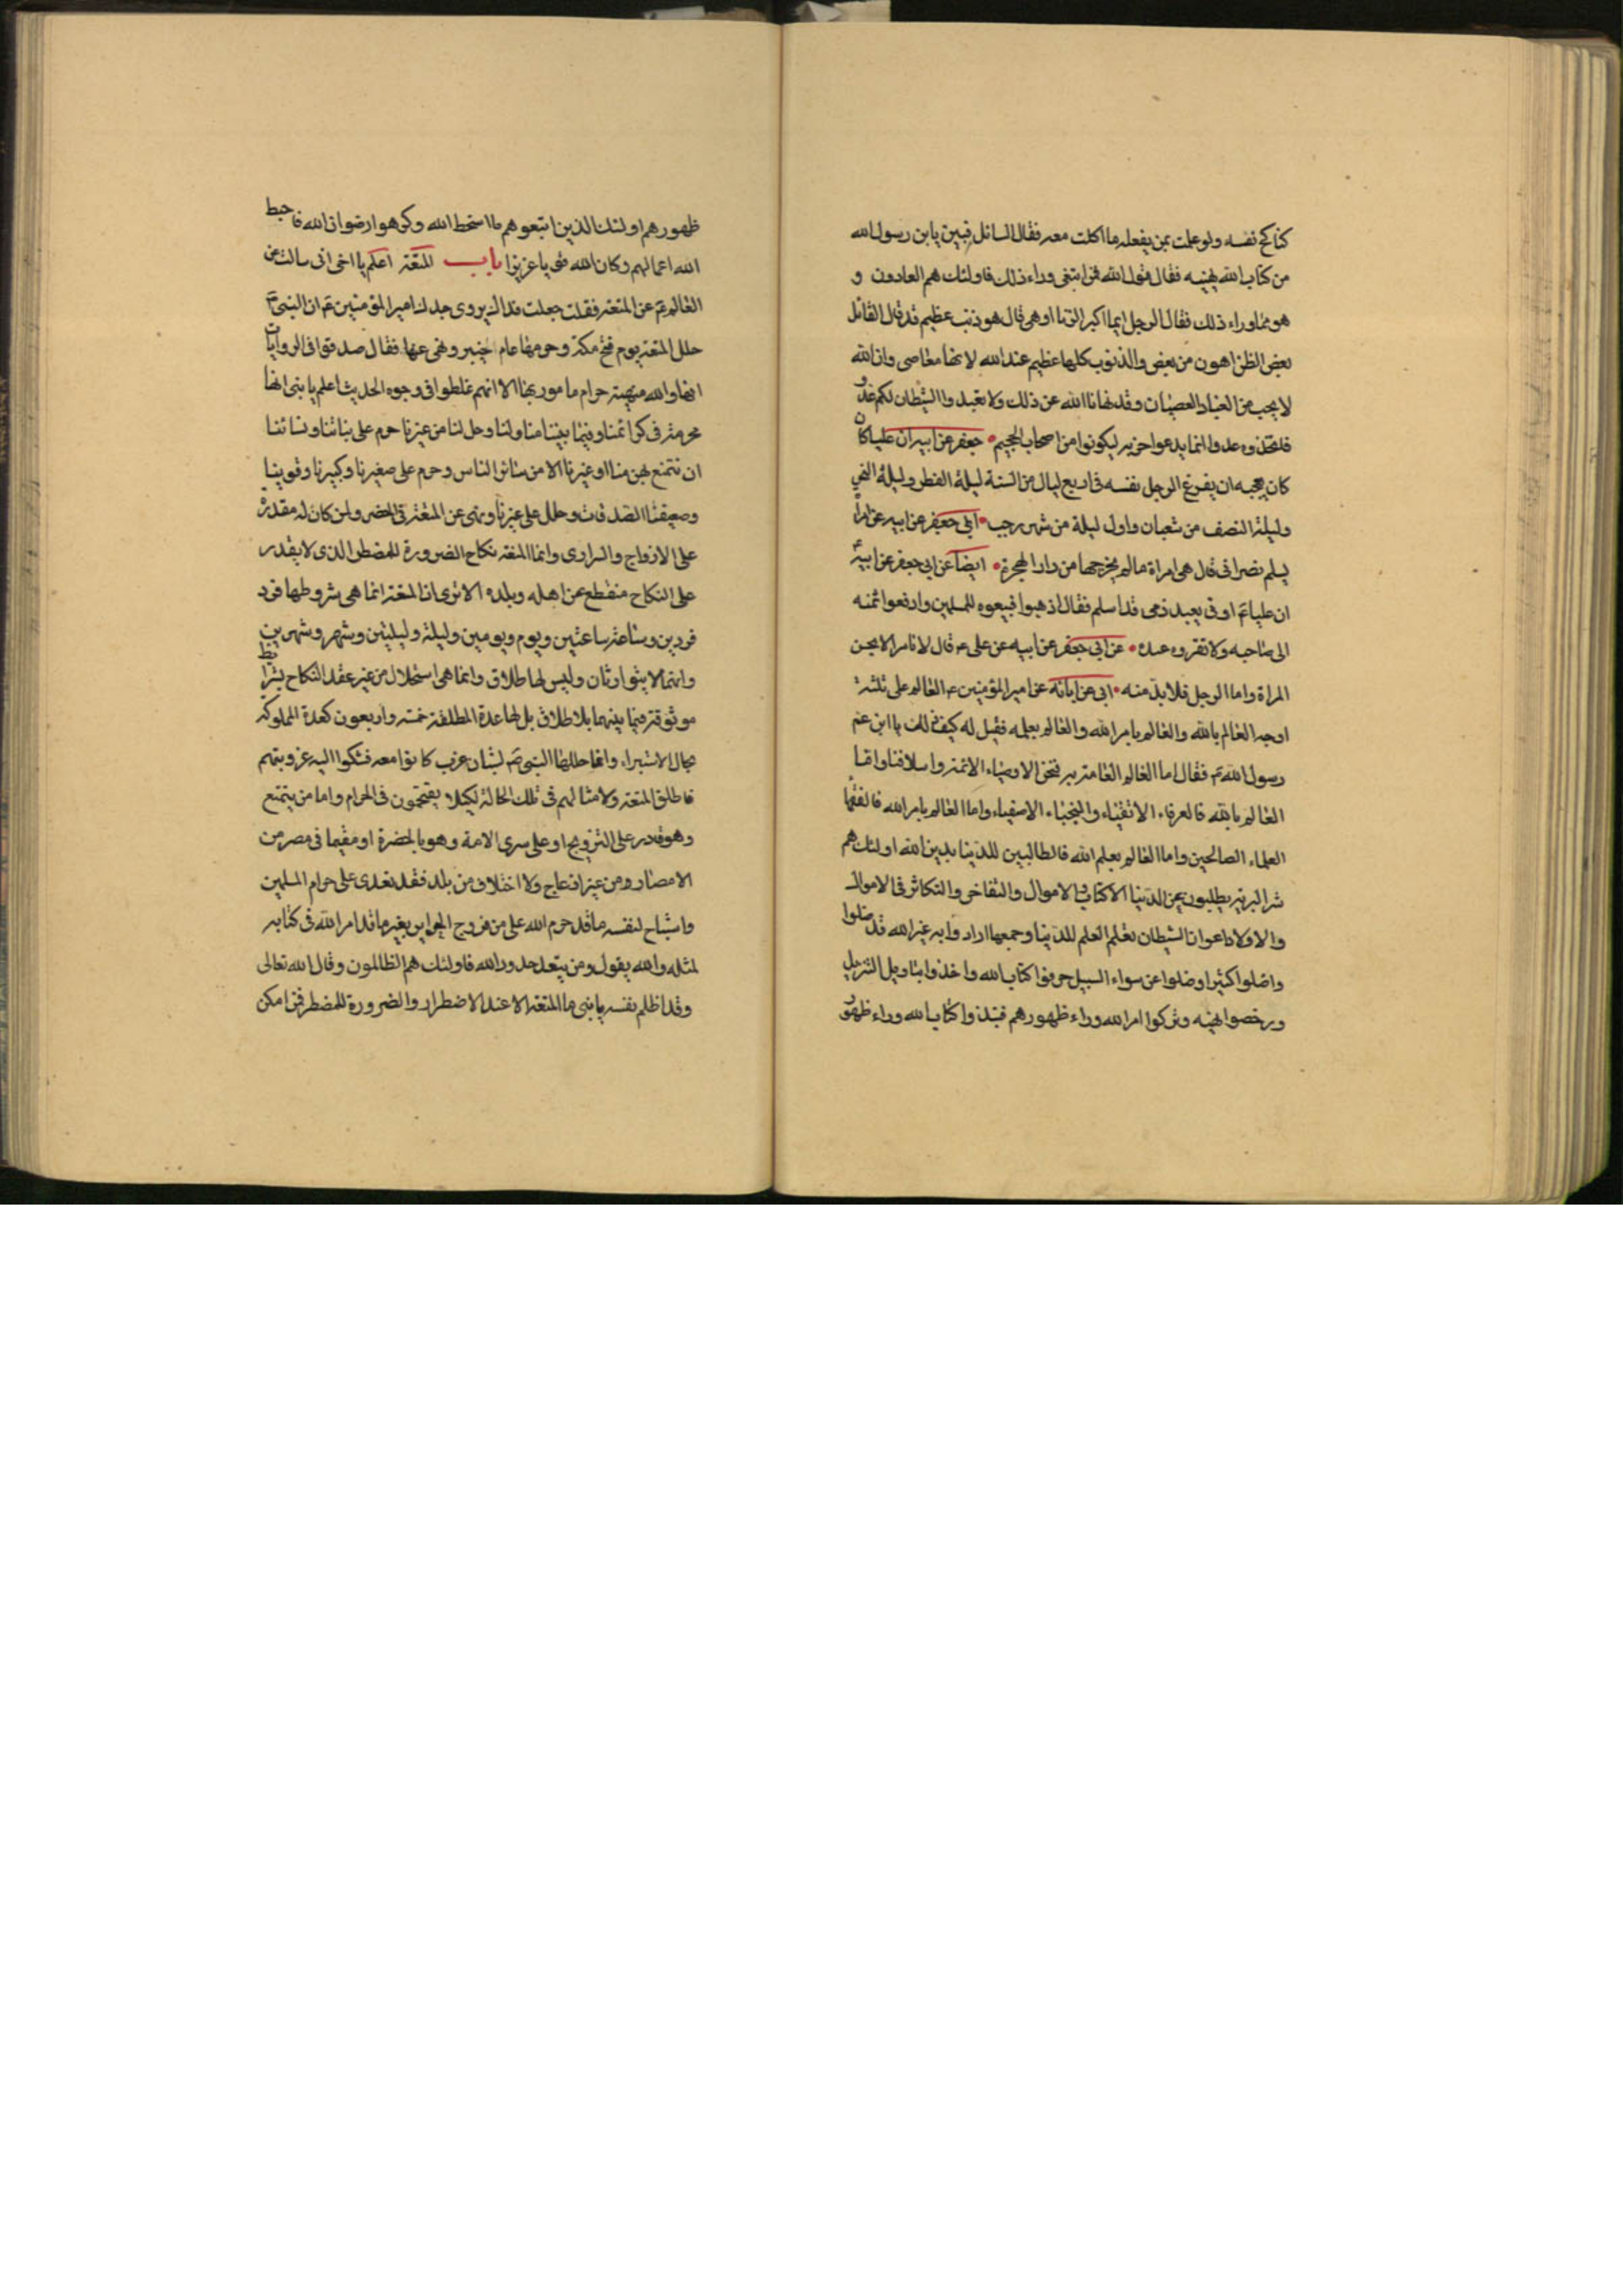 كناكح نفسه ولو علمت بمن يفعله ما اكلت معه فقال السائل فبين يابن رسول الله
من كتاب الله نهيه فقال قول الله فمن ابتغى وراء ذلك فاولئك هم العادون و
هو مما وراء ذلك فقال الرجل ايما اكبر الزنا او هي قال هو ذنب عظيم قد قال القائل
بعض الظن اهون من بعض والذنوب كلها عظيم عند الله لانها معاصى وان الله
لا يحب من العباد العصيان وقد نهانا الله عن ذلك ولا تعبدوا الشيطان لكم عدو
فلتخذوه عدوا انما يدعوا حزبه ليكونوا من اصحاب الجحيم جعفر عن ابيه ان عليا كان
كان يعجبه ان يفرغ الرجل نفسه فى اربع ليال من السنة ليلة الفطر وليلة النحر
وليلة النصف من شعبان واول ليلة من شهر رجب ابى جعفر عن ابيه عن امرأ
يسلم نصرانى قال هى امراة مالم يخرجها من دار الهجرة ايضا عن ابى جعفر عن ابيه
ان عليا ع اوتى بعبد ذمى قد اسلم فقال اذهبوا فبيعوه للمسلمين وادفعوا ثمنه
الى صاحبه ولا تقروه عنده عن ابى جعفر عن ابيه عن على ع قال لا تامر الا بحسن
المراة واما الرجل فلا بد منه ابى عن ابائه عن امير المؤمنين ع العالم على ثلثة
اوجه العالم بالله والعالم بامر الله والعالم بعلمه فقيل له كيف ذلك يا ابن عم
رسول الله ص فقال اما العالم العامة به فنحن الاوصياء الائمة واسلافنا واما
العالم بالله فالعرفاء الاتقياء والنجباء الاصفياء واما العالم بامر الله فالفقها
العلماء الصالحين واما العالم بعلم الله فالطالبين للدنيا بدين الله اولئك هم
شر البرية يطلبون بحن الدنيا الاكتاب الاموال والتفاخر والتكاثر فى الاموال
والاولاد اعوان الشيطان تعلم العلم للدنيا وجمعها اراد وا به غير الله قد ضلوا
واضلوا كثيرا وضلوا عن سواء السبيل حرفوا كتاب الله واخذوا بتاويل التنزيل
ورخصوا نهيه وتركوا امر الله وراء ظهورهم فنبذوا كتاب الله وراء ظهور
ظهورهم اولئك الذين اتبعوهم ما اسخط الله وكرهوا رضوان الله فاحبط
الله اعمالهم وكان الله قويا عزيزا باب المتعة اعلم يا اخى انى سالت عن
العالم ع عن المتعة فقلت جعلت فداك يروى جدك امير المؤمنين ع ان النبى ص
حلل المتعة يوم فتح مكة وحرمها عام خيبر ونهى عنها فقال صدقوا فى الروايات
انها والله منهية حرام مامور بها الا انهم غلطوا فى وجوه الحديث اعلم يا بنى انها
محرمة فى كرائمنا وفيما بيننا منا ولنا وحل لنا من غيرنا حرم على بناتنا ونسائنا
ان نتمتع بهن منا او غيرنا الا من سائر الناس وحرم على صغيرنا وكبيرنا وقوينا
وضعيفنا الصدقات وحلل على غيرنا ونهى عن المتعة فى الحضر ولمن كان له مقدرة
على الازواج والسرارى وانما المتعة نكاح الضرورة للمضطر الذى لا يقدر
على النكاح منقطع عن اهله وبلده الا ترى ان المتعة انما هى بشروطها فرد
فردين وساعة ساعتين ويوم ويومين وليلة وليلتين وشهر وشهرين
وانهما لا يتوارثان وليس لها طلاق وانما هى استحلال من غير عقد النكاح بشرايط
موثوقة فيما بينهما بلا طلاق بل لها عدة المطلقة خمسة واربعون كعدة المملوكة
بحال الاستبراء وانما حللها النبى ص لشبان عزب كانوا معه فشكوا اليه عزوبتهم
فاطلق المتعة ولامثالهم فى تلك الحالة لكيلا يقتحمون فى الحرام واما من يتمتع
وهو قادر على التزويج او على سرى الامة وهو بالحضرة او مقيما فى مصر من
الامصار ومن غير انزعاج ولا اختلاف من بلد فقد تعدى على حرام المسلمين
واستباح لنفسه ما قد حرم الله على من فروج الحراير بغير ما قد امر الله فى كتابه
لمثله والله يقول ومن يتعد حدود الله فاولئك هم الظالمون وقال الله تعالى
وقد ظلم نفسه يا بنى ما المتعة الا عند الاضطرار والضرورة للمضطر فمن امكن